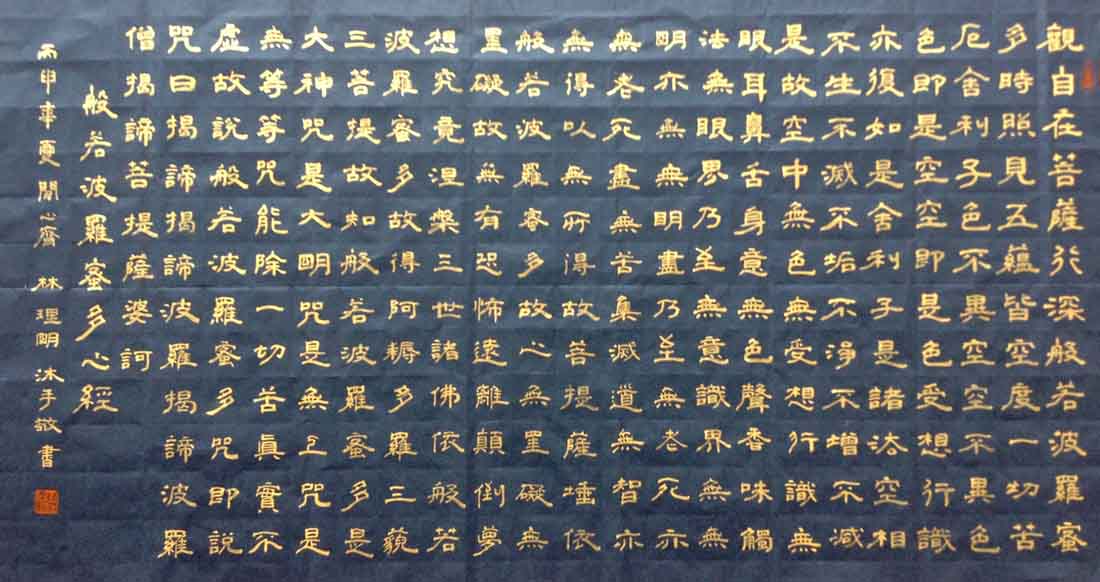 觀自在菩薩行深般若波羅蜜
多時照見五蘊皆空度一切苦
厄舍利子色不異空空不異色
色即是空空即是色受想行識
亦復如是舍利子是諸法空相
不生不滅不垢不淨不增不減
是故空中無色無受想行識無
眼耳鼻舌身意無色聲香味觸
法無眼界乃至無意識界無無
明亦無無明盡乃至無老死亦
無老死盡無苦集滅道無智亦
無得以無所得故菩提薩埵依
般若波羅蜜多故心無罣礙無
罣礙故無有恐怖遠離顛倒夢
想究竟涅槃三世諸佛依般若
波羅蜜多故得阿耨多羅三藐
三菩提故知般若波羅蜜多是
大神咒是大明咒是無上咒是
無等等咒能除一切苦眞實不
虛故說般若波羅蜜多咒即說
咒曰揭諦揭諦波羅揭諦波羅
僧揭諦菩提薩婆訶
般若波羅蜜多心經
丙申年夏閒心齋 林理明沐手敬書